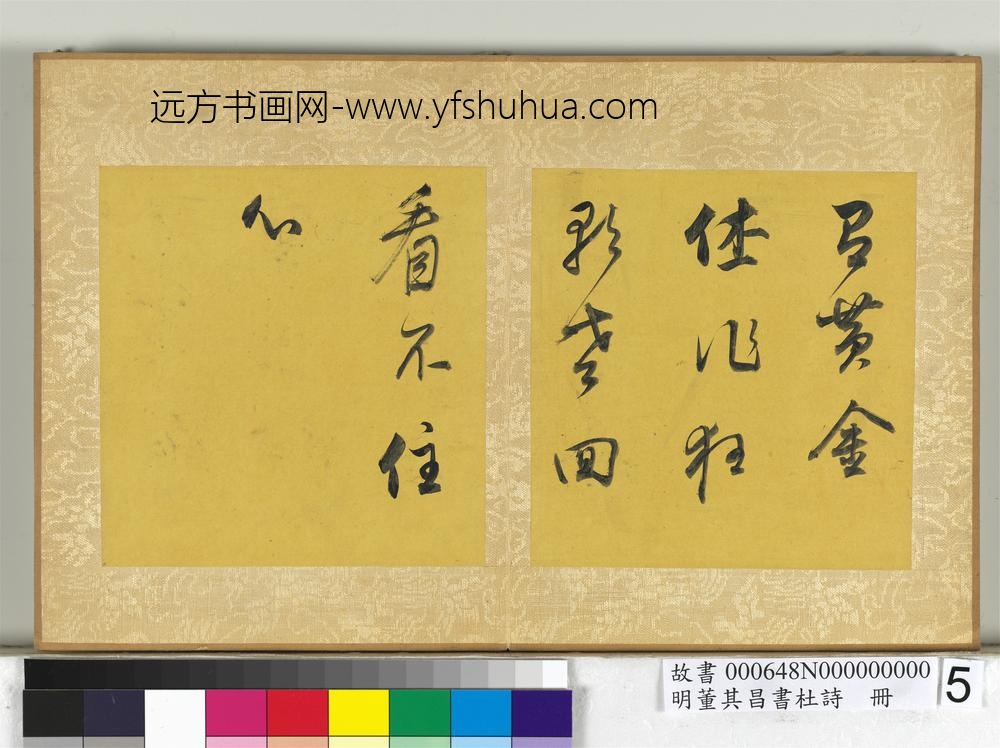 远方书画网-www.yfshuhua.com
有黄金
休作狂
歌老回
看不住
心
故書 000648N000000000
明董其昌書杜詩 冊
5